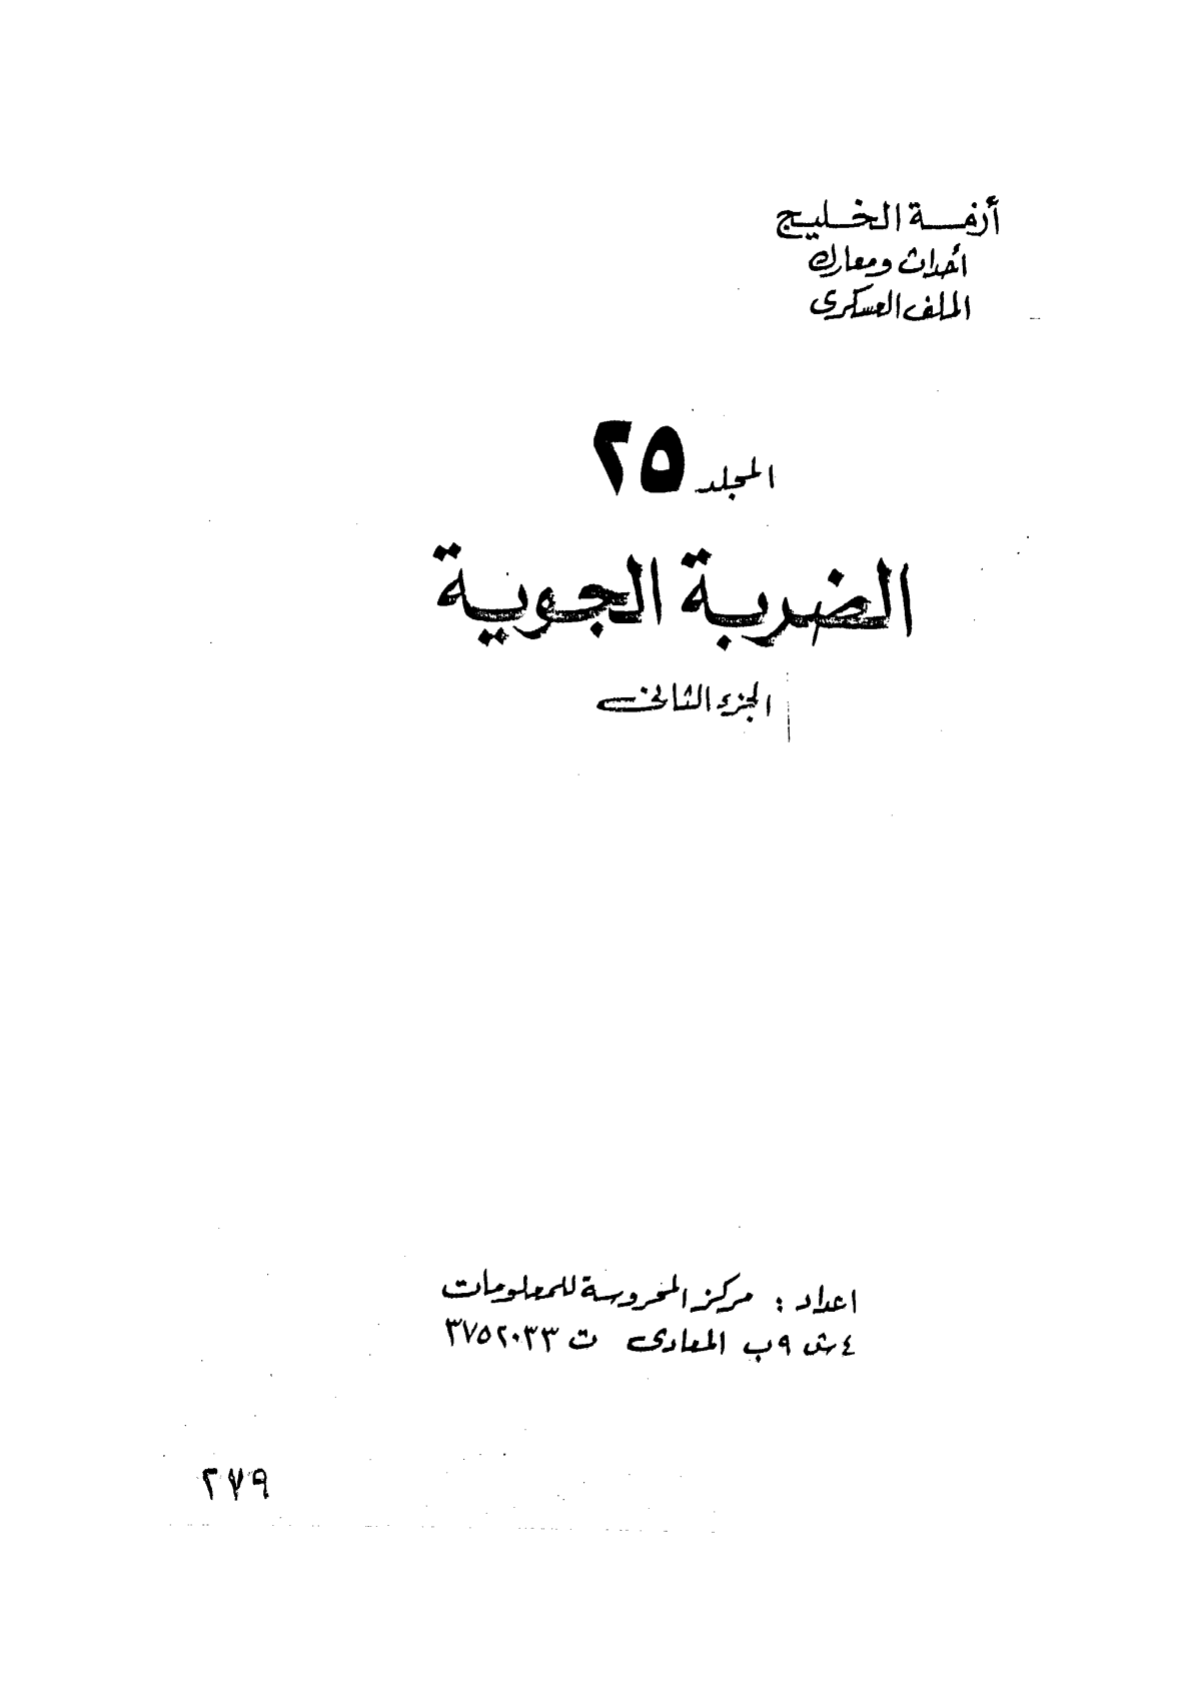 أزمة الخليج
أحداث ومعارك
الملف العسكرى
المجلد ٢٥
الضربة الجوية
الجزء الثانى
اعداد : مركز المحروسة للمعلومات
٤ ش ٩ ب المعادى ت ٣٧٥٢٠٣٣
٢٧٩